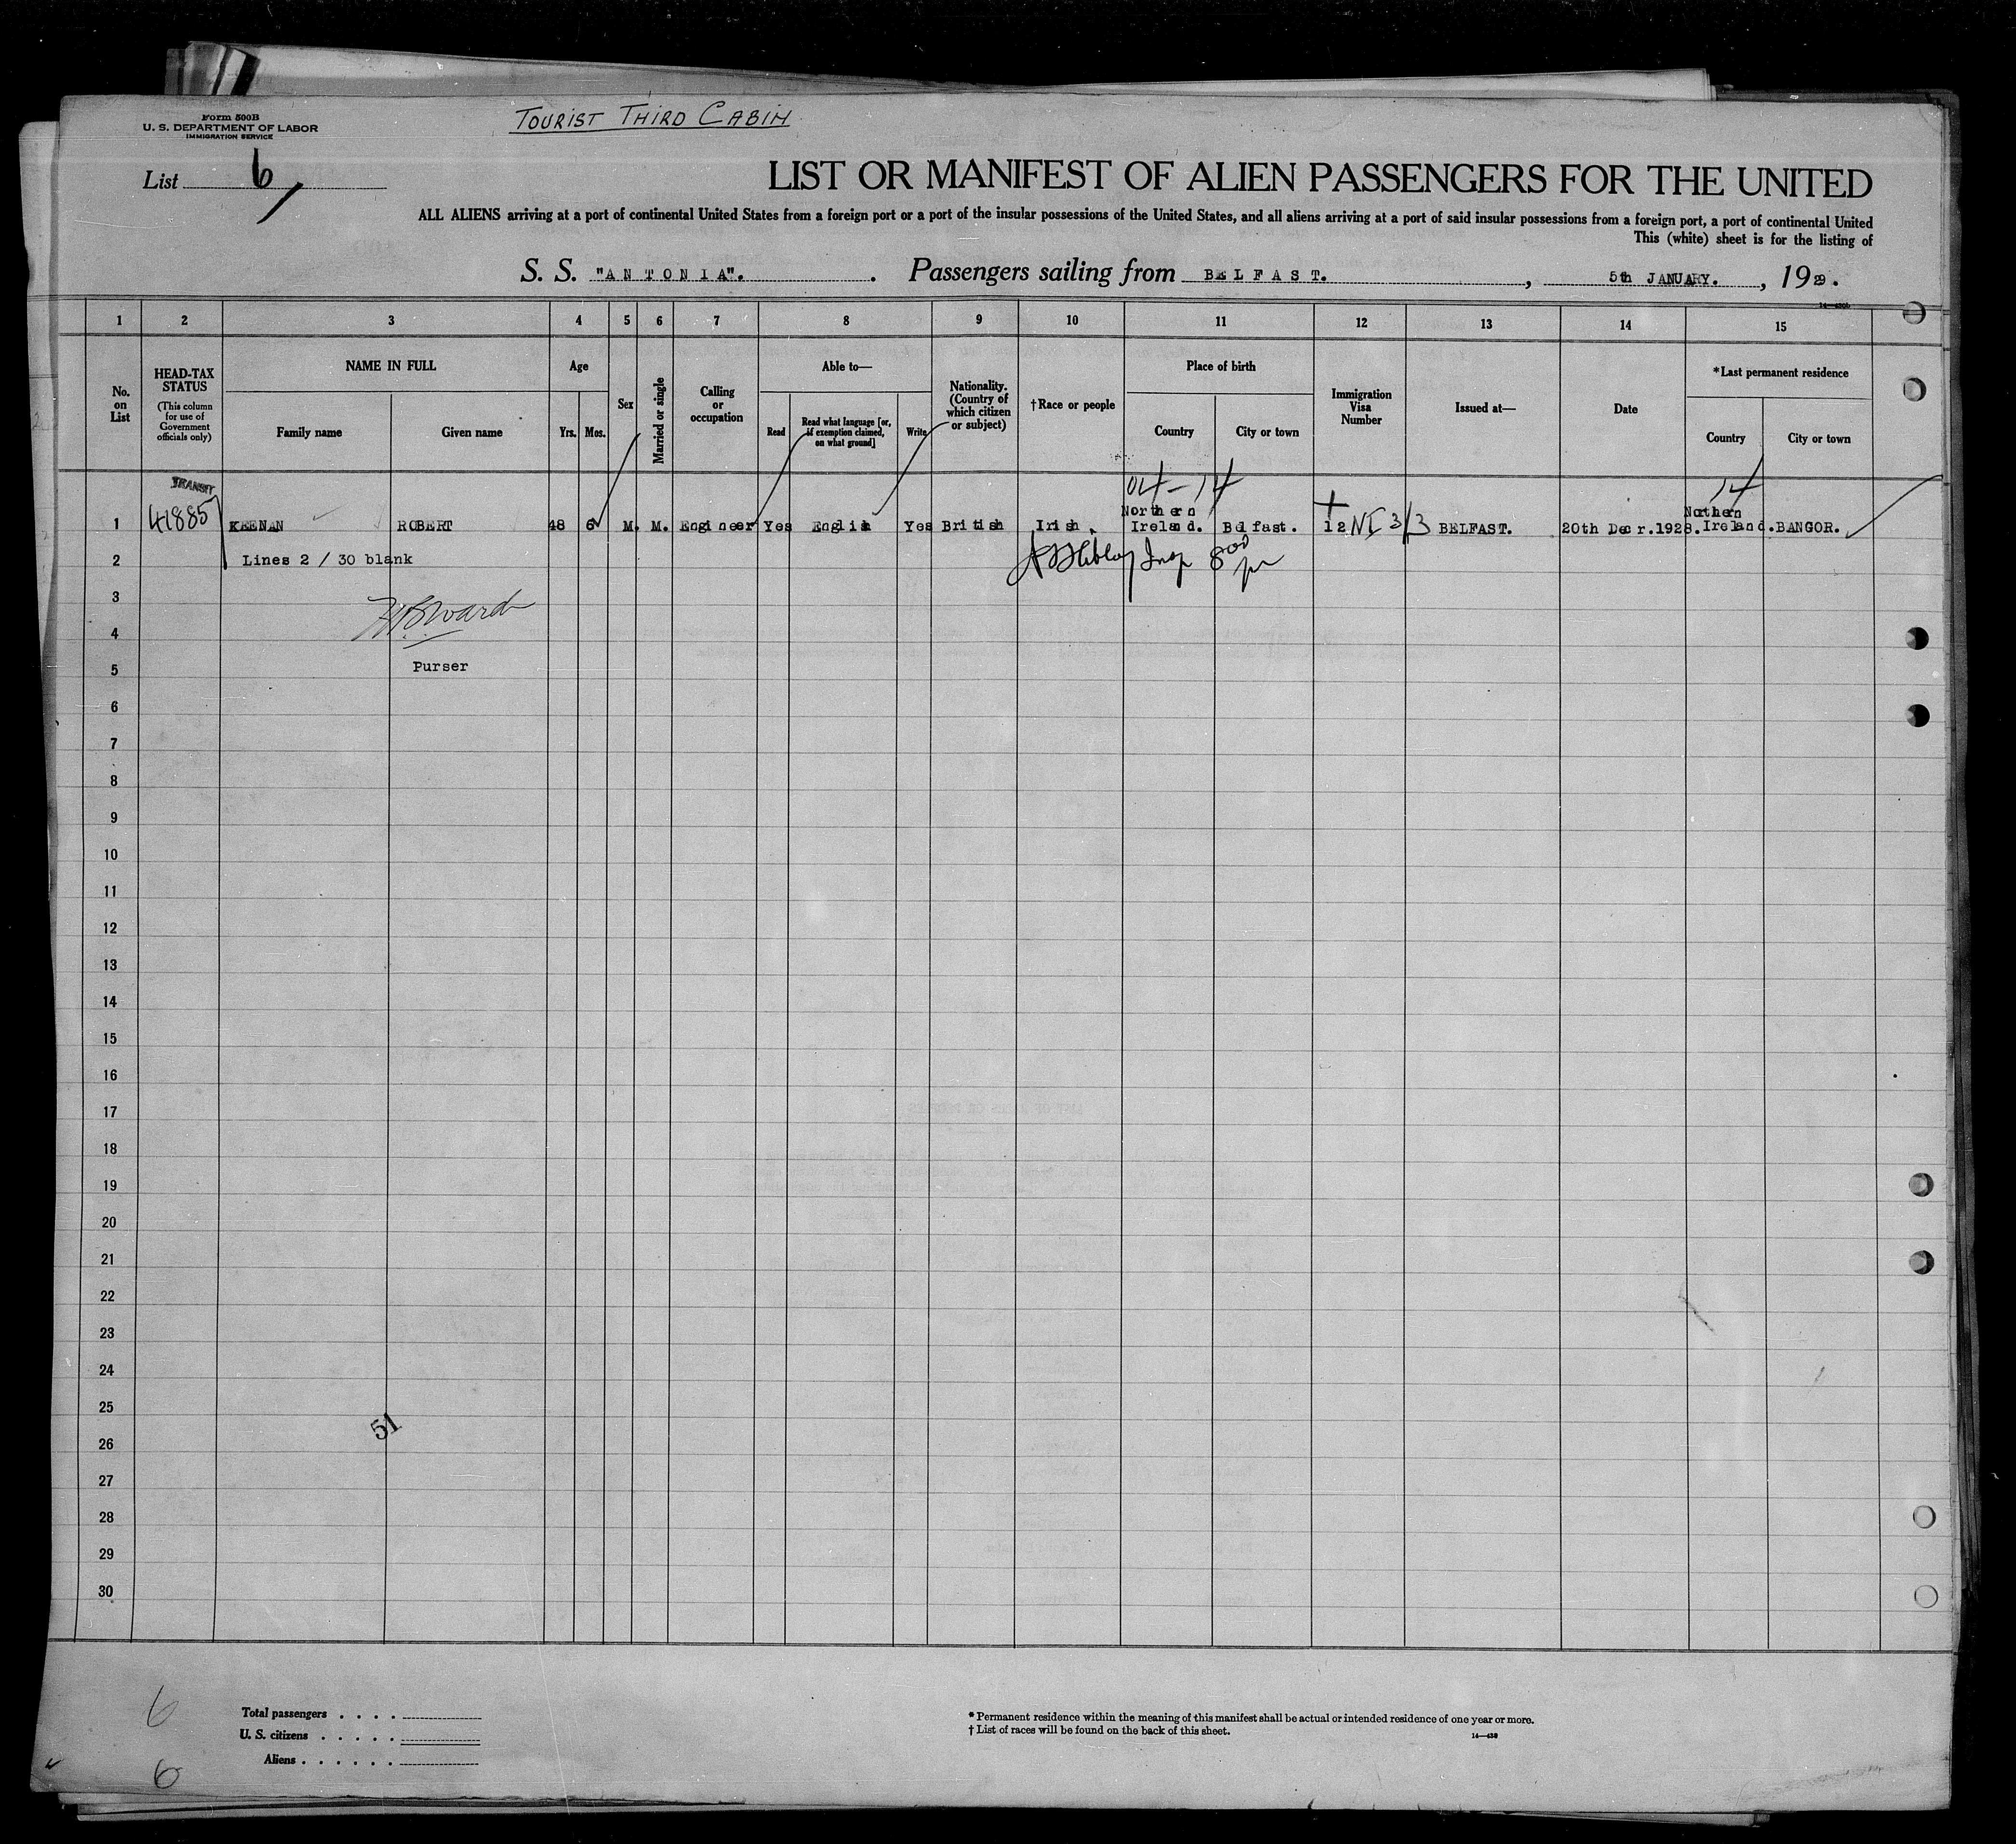 Form 500B
U. S. DEPARTMENT OF LABOR
IMMIGRATION SERVICE
TOURIST THIRD CABIN
List 6
LIST OR MANIFEST OF ALIEN PASSENGERS FOR THE UNITED
ALL ALIENS arriving at a port of continental United States from a foreign port or a port of the insular possessions of the United States, and all aliens arriving at a port of said insular possessions from a foreign port, a port of continental United
This (white) sheet is for the listing of
S. S. "ANTONIA". Passengers sailing from BELFAST. , 5th JANUARY. , 1929.
1 2 3 4 5 6 7 8 9 10 11 12 13 14 15
No. on List
HEAD-TAX STATUS
(This column for use of Government officials only)
NAME IN FULL
Family name
Given name
Age
Yrs.
Mos.
Sex
Married or single
Calling or occupation
Able to—
Read
Read what language [or, if exemption claimed, on what ground]
Write
Nationality. (Country of which citizen or subject)
†Race or people
Place of birth
Country
City or town
Immigration Visa Number
Issued at—
Date
*Last permanent residence
Country
City or town
TRANSIT
04-14
14
1 41885 KEENAN ROBERT 48 6 M. M. Engineer Yes English Yes British Irish. Northern Ireland. Belfast. 12 NI 3/3 BELFAST. 20th Decr.1928. Northern Ireland. BANGOR.
2 Lines 2 / 30 blank
3
4
Purser
5
6
7
8
9
10
11
12
13
14
15
16
17
18
19
20
21
22
23
24
25
51
26
27
28
29
30
6
Total passengers . . . .
U. S. citizens . . . . .
Aliens . . . . . .
6
* Permanent residence within the meaning of this manifest shall be actual or intended residence of one year or more.
† List of races will be found on the back of this sheet.